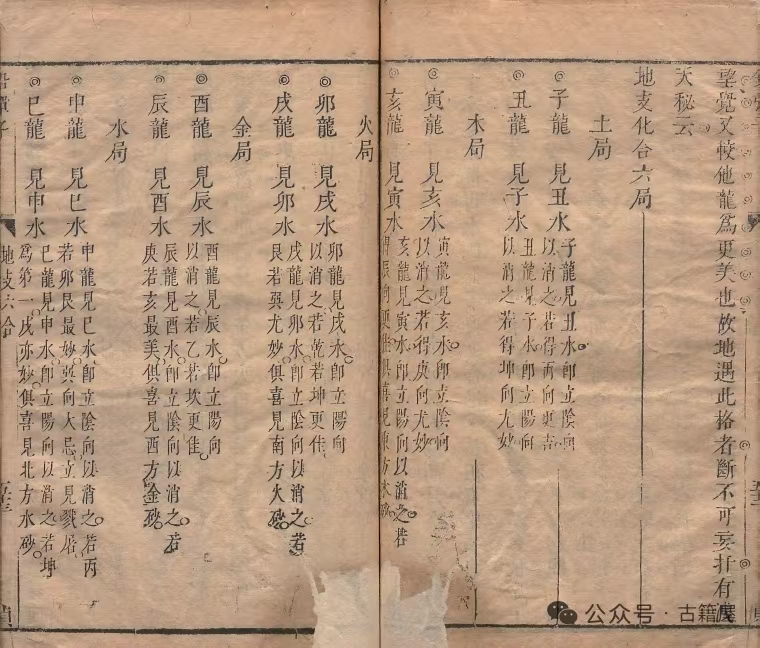 望覺又較他龍爲更美也故地遇此格者斷不可妄扦有
天秘云
地支化合六局
土局
子龍 見丑水 子龍見丑水即立陰向以消之若得丙向更吉
丑龍 見子水 丑龍見子水即立陽向以消之若得坤向尤妙
木局
寅龍 見亥水 寅龍見亥水即立陰向以消之若得庚向尤妙
亥龍 見寅水 亥龍見寅水即立陽向以消之若得辰向更佳俱喜見東方木砂
火局
卯龍 見戌水 卯龍見戌水即立陽向以消之若乾若坤更佳
戌龍 見卯水 戌龍見卯水即立陰向以消之若艮若巽尤妙俱喜見南方火砂
金局
酉龍 見辰水 酉龍見辰水即立陽向以消之若乙若坎更佳
辰龍 見酉水 辰龍見酉水即立陰向以消之若庚若亥最美俱喜見西方金砂
水局
申龍 見巳水 申龍見巳水即立陰向以消之若丙若卯艮最妙巽向大忌立見戮屠
巳龍 見申水 巳龍見申水即立陽向以消之若坤爲第一戌亦妙俱喜見北方水砂
地支六合
公众号·古籍